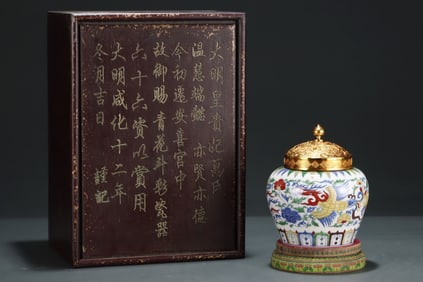 大明皇贵妃萬氏
温慧端懿 亦賢亦德
今初遷安喜宫中
故御赐青花斗彩瓷器
六十六资以賞用
大明成化十二年
冬月吉日
謹記